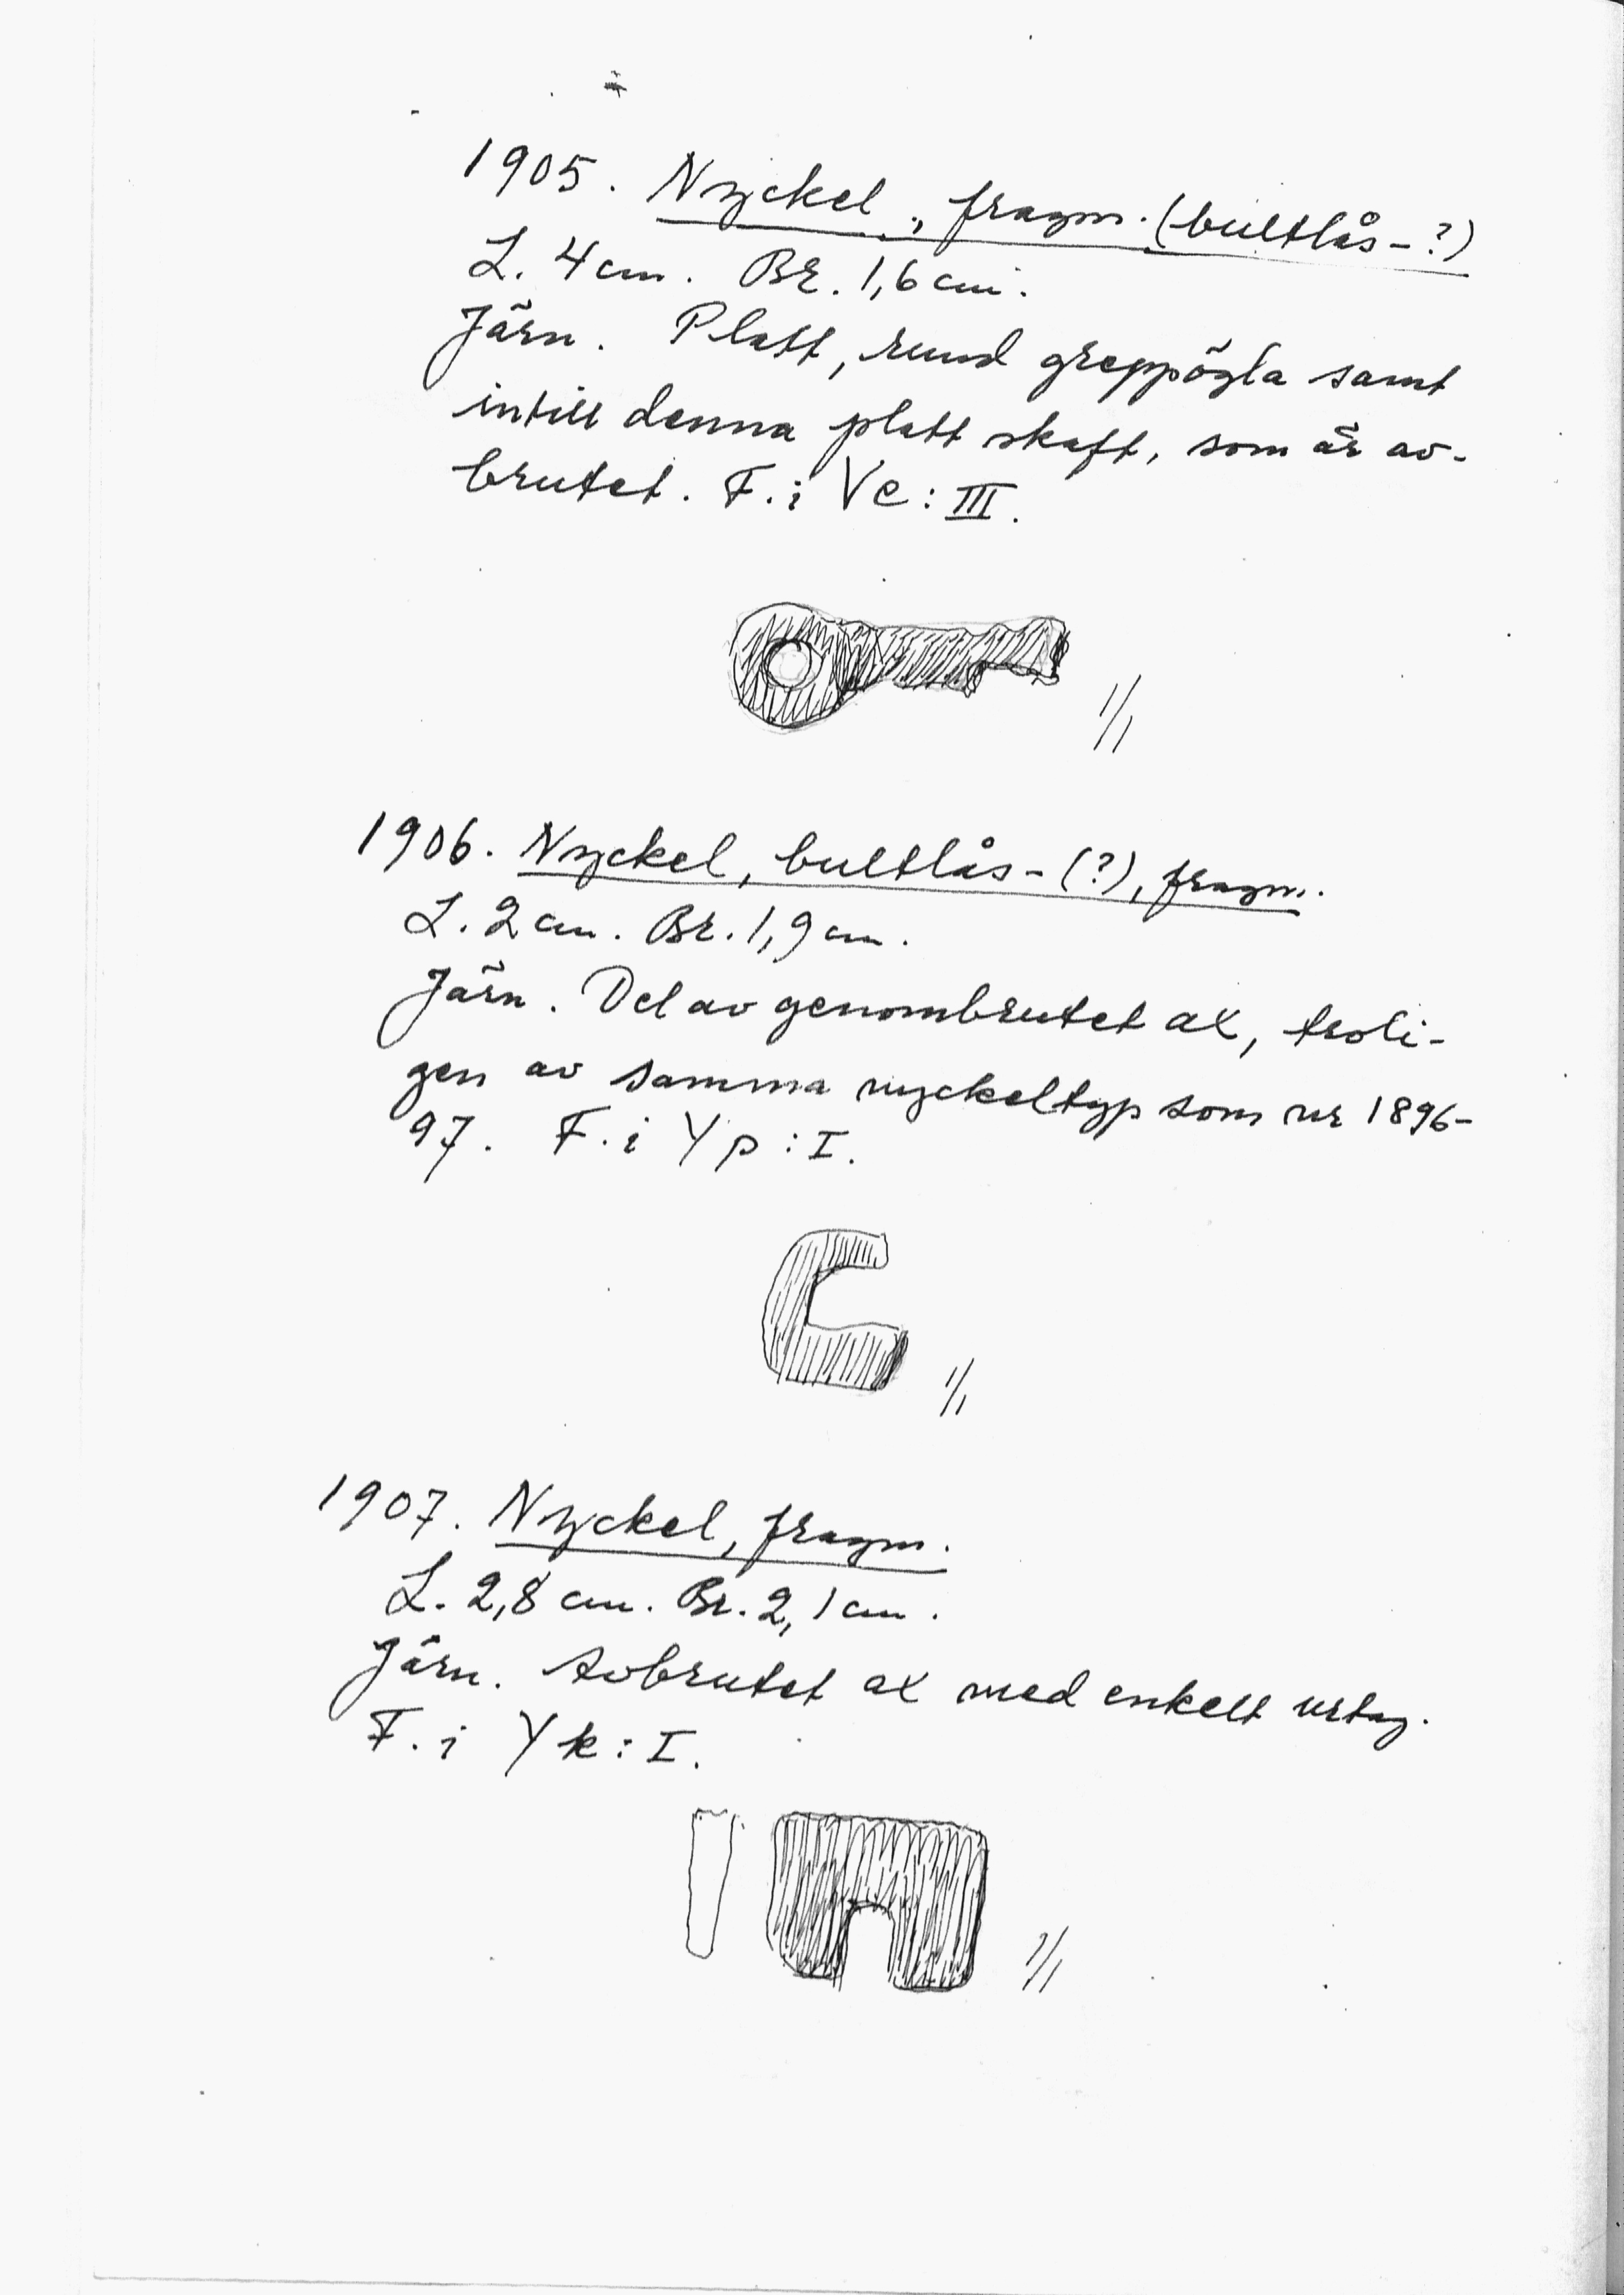 1905. Nyckel, fragm. (bultlås-?)
L. 4 cm. Br. 1,6 cm.
Järn. Platt, rund greppögla samt
intill denna platt skaft, som är av-
brutet. F. i Vc: III.
1/1
1906. Nyckel, bultlås-(?), fragm.
L. 2 cm. Br. 1,9 cm.
Järn. Del av genombrutet ax, troli-
gen av samma nyckeltyp som nr 1896-
97. F. i Yp: I.
1/1
1907. Nyckel, fragm.
L. 2,8 cm. Br. 2,1 cm.
Järn. Avbrutet ax med enkelt urtag.
F. i Yk: I.
1/1